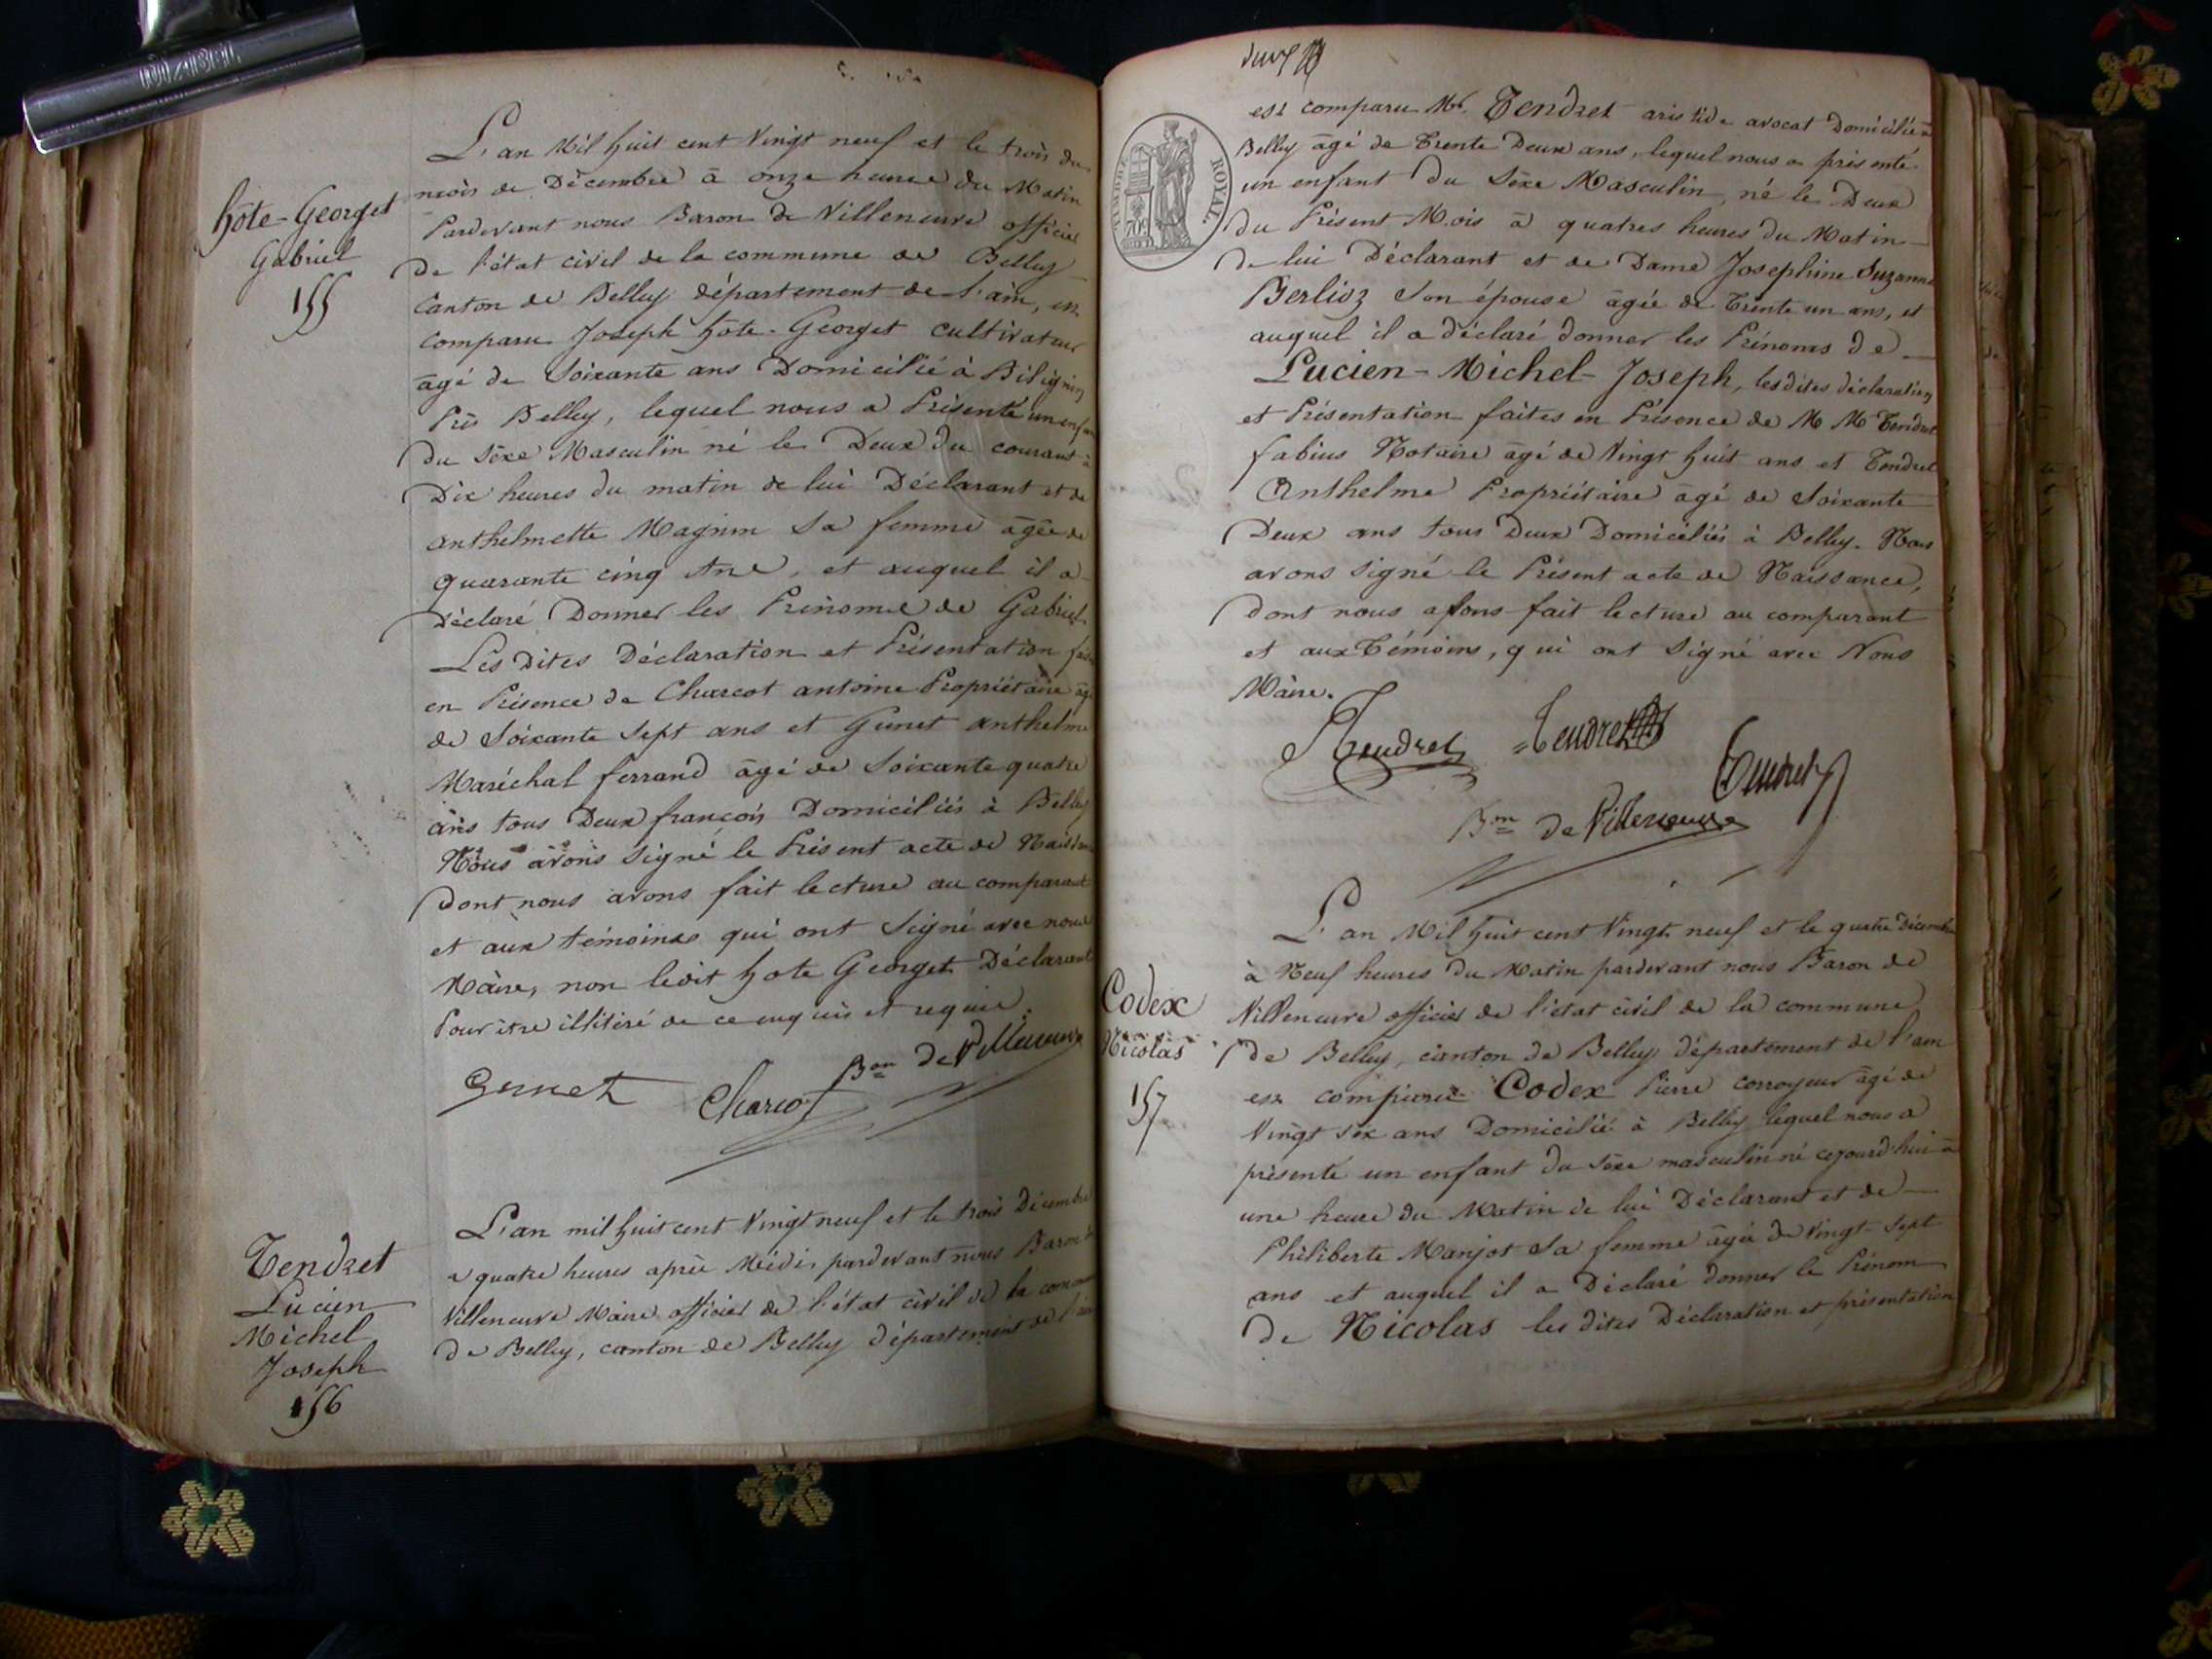 hôte-Georget
Gabriel
155
L'an Mil huit cent Vingt neuf et le trois du
mois de Décembre à onze heures du Matin
Pardevant nous Baron de Villeneuve officier
de l'état civil de la commune de Belley
Canton de Belley département de l'ain, est
Comparu Joseph hôte-Georget cultivateur
âgé de Soixante ans Domicilié à Bilignin
Près Belley, lequel nous a Présenté un enfant
du Séxe Masculin né le Deux du courant à
Dix heures du matin de lui Déclarant et de
anthelmette Magnin Sa femme âgée de
quarante cinq Ans, et auquel il a
déclaré Donner les Prénoms de Gabriel.
Les dites Déclaration et Présentation faites
en Présence de Charcot antoine Propriétaire âgé
de Soixante Sept ans et Gunet anthelme
Maréchal ferrand âgé de Soixante quatre
ans tous Deux françois Domiciliés à Belley
Nous avons Signé le Présent acte de Naissance
dont nous avons fait lecture au comparant
et aux témoins qui ont Signé avec nous
Maire, non ledit hote Georget Déclarant
Pour être illitéré de ce enquis et requis.
Gunet Charcot Bon de Villeneuve
Tendret
Lucien
Michel
Joseph
156
L'an mil huit cent Vingt neuf et le trois Décembre
à quatre heures après Midi, pardevant nous Baron de
Villeneuve Maire officier de l'état civil de la commune
de Belley, canton de Belley département de l'ain
TIMBRE ROYAL.
70c
est comparu Mr. Tendret aristide avocat domicilié à
Belley âgé de Trente Deux ans, lequel nous a présenté
un enfant du Séxe Masculin, né le Deux
du Présent Mois à quatres heures du Matin
de lui Déclarant et de Dame Josephine Suzanne
Berlioz Son épouse âgée de Trente un ans, et
auquel il a déclaré donner les Prénoms de
Lucien-Michel-Joseph, lesdites déclaration
et Présentation faites en Présence de M M Tendret
fabius Notaire âgé de Vingt huit ans et Tendret
Anthelme Propriétaire âgé de Soixante
Deux ans tous Deux Domiciliés à Belley. Nous
avons signé le Présent acte de Naissance,
dont nous avons fait lecture au comparant
et aux Témoins, qui ont Signé avec Nous
Maire.
Tendret Tendret
Tendret
Bon de Villeneuve
Codex
Nicolas
157
L'an Mil huit cent Vingt neuf et le quatre Décembre
à Neuf heures du Matin pardevant nous Baron de
Villeneuve officier de l'état civil de la commune
de Belley, canton de Belley département de l'ain
est comparu Codex Pierre corroyeur âgé de
Vingt six ans Domicilié à Belley lequel nous a
présenté un enfant du séxe masculin né cejourd'hui à
une heure du Matin de lui Déclarant et de
Philiberte Manjot Sa femme âgée de Vingt-Sept
ans et auquel il a Déclaré donner le Prénom
de Nicolas les dites Déclaration et présentation